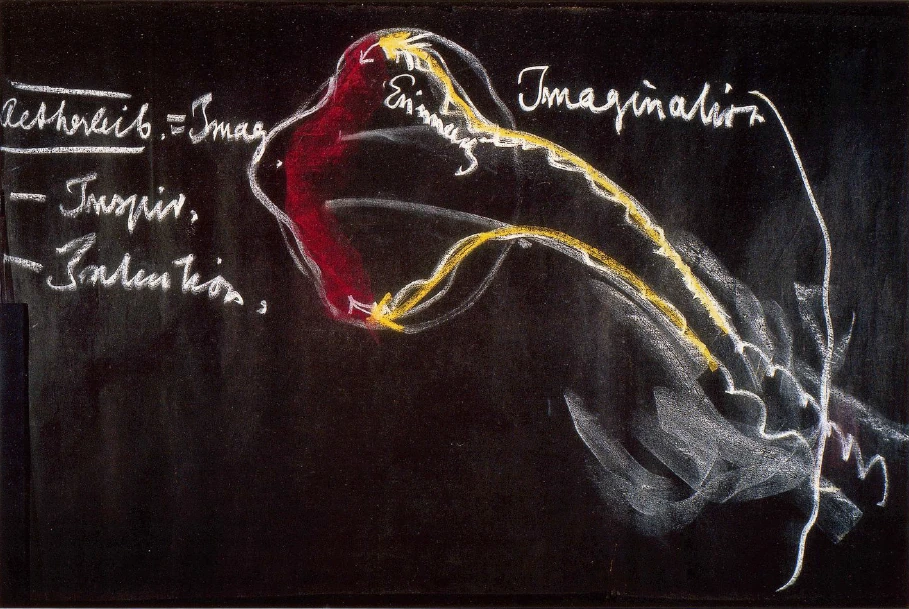 Aetherleib. = Imag
Imagination
– Inspir.
– Intuition.